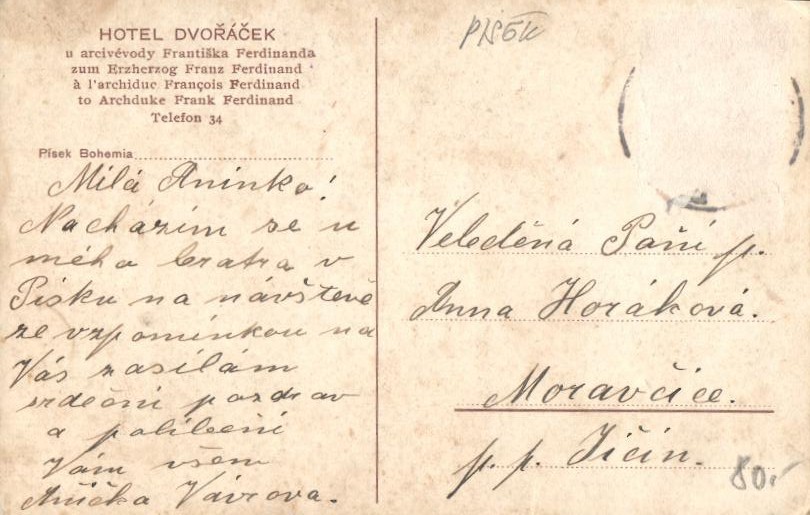 HOTEL DVOŘÁČEK
u arcivévody Františka Ferdinanda
zum Erzherzog Franz Ferdinand
à l'archiduc François Ferdinand
to Archduke Frank Ferdinand
Telefon 34
Písek Bohemia
Milá Aninko!
Nacházím se u
mého bratra v
Písku na návštěvě
ze vzpomínkou na
Vás zasílám
srdečni pozdrav
a políbeni
Vám všem
Aňička Vávrova.
PÍSEK
Veleděná Paňí p.
Anna Horáková.
Moravčice.
p. p. Jičín.
80.-